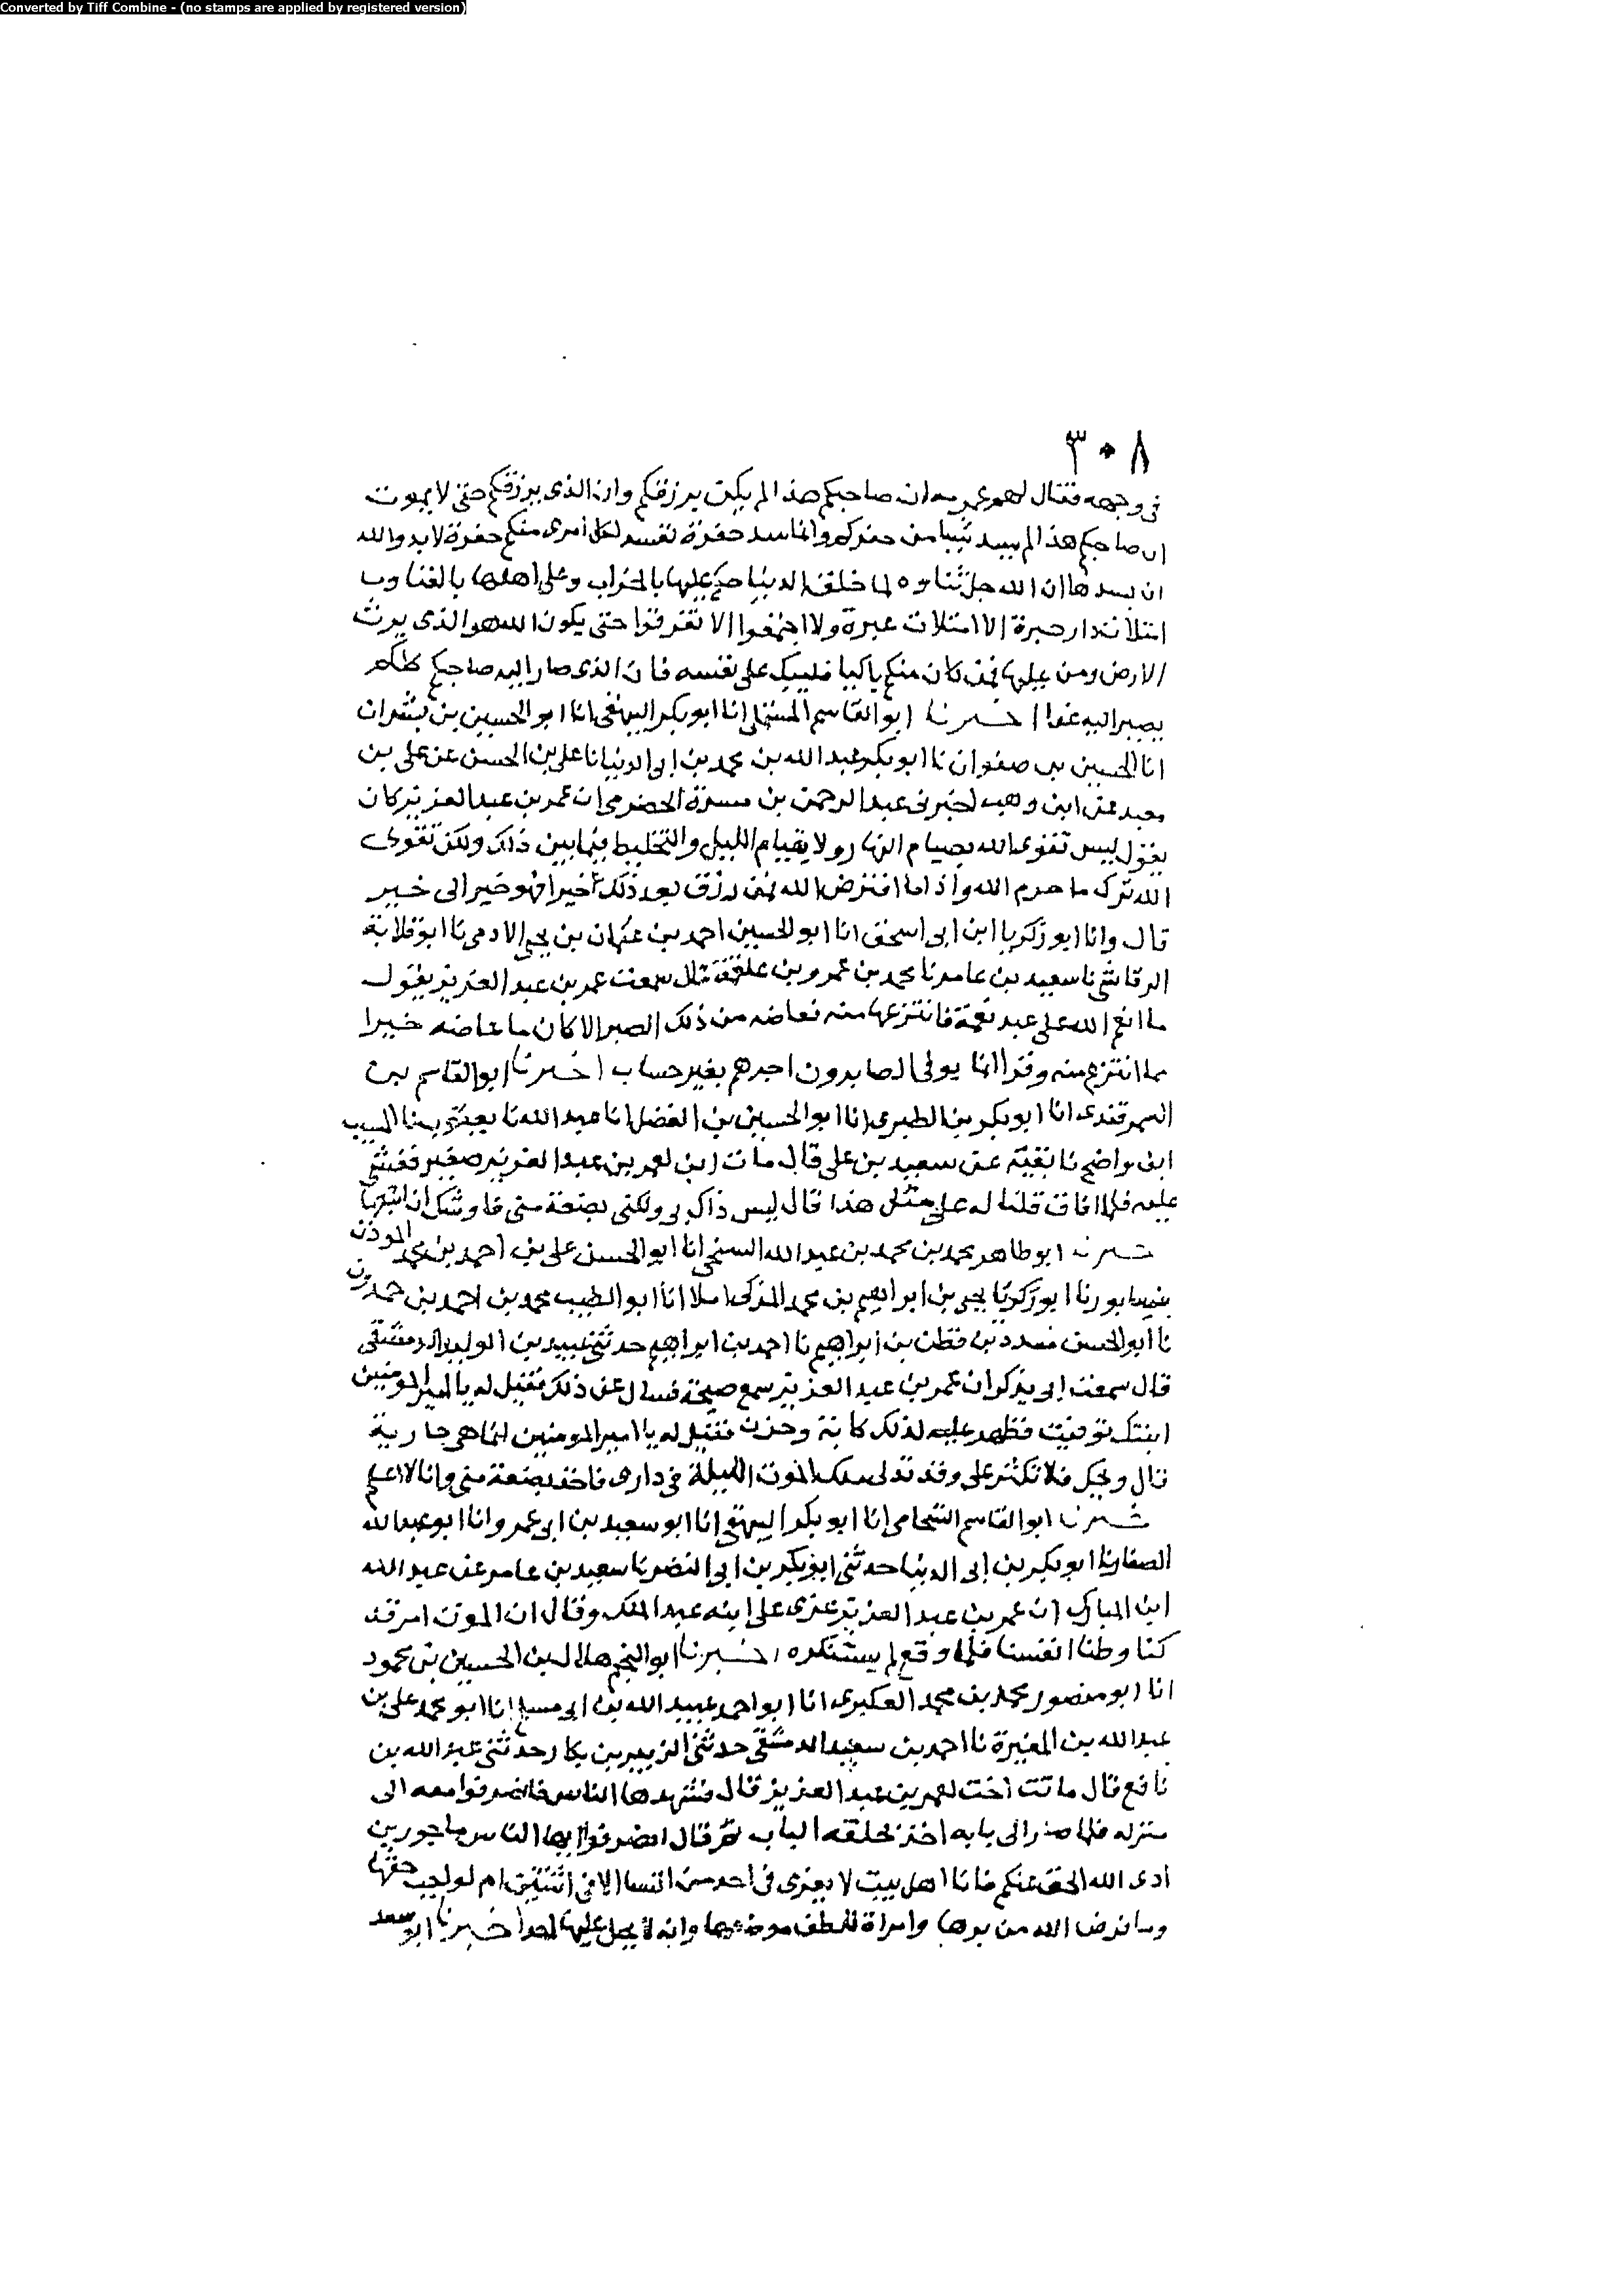 Converted by Tiff Combine - (no stamps are applied by registered version)
٣٠٨
فى وجهه فقال لهم عمر مه ان صاحبكم هذا لم يكن يرزقكم وان الذى يرزقكم حتى لا يموت
ان صاحبكم هذا لم يسد شيا من حفركم وانما سد حفرة نفسه لكل امرى منكم حفرة لا بد والله
ان يسدها ان الله جل ثناوه لما خلق الدنيا حكم عليها بالخراب وعلى اهلها بالفنا وب
امتلات دار حبرة الا امتلات عبرة ولا اجتمعوا الا تفرقوا حتى يكون الله هو الذى يرث
الارض ومن عليها فمن كان منكم باكيا فليبك على نفسه فان الذى صار اليه صاحبكم كلكم
يصير اليه غدا اخبرنا ابو القاسم المستملى انا ابو بكر البيهقى انا ابو الحسين بن بشران
انا الحسين بن صفوان نا ابو بكر عبد الله بن محمد بن ابى الدنيا نا على بن الحسن عن على بن
معبد عن ابن وهب اخبرنى عبد الرحمن بن ميسرة الحضرمى ان عمر بن عبد العزيز كان
يقول ليس تقوى الله بصيام النهار ولا بقيام الليل والتخليط فيما بين ذلك ولكن تقوى
الله ترك ما حرم الله واذا ما افترض الله فمن رزق بعد ذلك خيرا فهو خير الى خير
قال وانا ابو زكريا ابن ابى اسحق انا ابو الحسين احمد بن عثمان بن يحيى الادمى نا ابو قلابة
الرقاشى نا سعيد بن عامر نا محمد بن عمرو بن علقمة قال سمعت عمر بن عبد العزيز يقول
ما انعم الله على عبد نعمة فانتزعها منه فعاضه من ذلك الصبر الا كان ما عاضه خيرا
مما انتزع منه وقرا انما يوفى الصابرون اجرهم بغير حساب اخبرنا ابو القاسم بن
السمرقندى انا ابو بكر بن الطبرى انا ابو الحسين بن الفضل انا عبد الله نا يعقوب نا المسيب
ابن واضح نا بقية عن سعيد بن على قال مات ابن لعمر بن عبد العزيز صغير فغشى
عليه فلما افاق قلنا له على مثل هذا قال ليس ذاك بى ولكنى بضعة منى فاوشك ان اتبعها
خبرنا ابو طاهر محمد بن محمد بن عبد الله السنجى انا ابو الحسن على بن احمد بن محمد الموذن
بنيسابور نا ابو زكريا يحيى بن ابراهيم بن محمد المزكى املا انا ابو الطيب محمد بن احمد بن حمدون
نا ابو الحسن مسدد بن قطن بن ابراهيم نا احمد بن ابراهيم حدثنى عبيد بن الوليد الدمشقى
قال سمعت ابى يذكر ان عمر بن عبد العزيز سمع صيحة فسال عن ذلك فقيل له يا امير المومنين
ابنتك توفيت فظهر عليه لذلك كابة وحزن فقيل له يا امير المومنين انما هى جارية
قال ويحك فلا تكثر على وقد تدلى ملك الموت الليلة فى دارى فاخذ بضعة منى وانا لا اعلم
خبرنا ابو القاسم الشحامى انا ابو بكر البيهقى انا ابو سعيد بن ابى عمرو انا ابو عبد الله
الصفار نا ابو بكر بن ابى الدنيا حدثنى ابو بكر بن ابى النضر نا سعيد بن عامر عن عبد الله
ابن المبارك ان عمر بن عبد العزيز عزى على ابنه عبد الملك وقال ان الموت امر قد
كنا وطنا انفسنا فلما وقع لم يستنكره اخبرنا ابو النجم هلال بن الحسين بن محمود
انا ابو منصور محمد بن محمد العكبرى انا ابو احمد عبيد الله بن ابى مسلم انا ابو محمد على بن
عبد الله بن المغيرة نا احمد بن سعيد الدمشقى حدثنى الزبير بن بكار حدثنى عبد الله بن
نافع قال ماتت اخت لعمر بن عبد العزيز قال فشهدها الناس فانصرفوا معه الى
منزله فلما صار الى بابه اخذ بحلقة الباب ثم قال انصرفوا ايها الناس ماجورين
ادى الله الحق عنكم فانا اهل بيت لا يعزى فى احد من النسا الا فى اثنتين ام لواجب حقها
وما فرض الله من برها وامراة للطف موضعها وانه لا يحل عليها احد اخبرنا ابو سعد